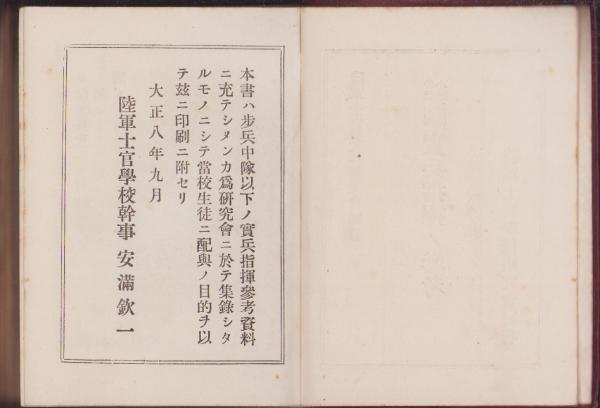 本書ハ步兵中隊以下ノ實兵指揮參考資料
ニ充テシメンカ爲硏究會ニ於テ集錄シタ
ルモノニシテ當校生徒ニ配與ノ目的ヲ以
テ玆ニ印刷ニ附セリ
大正八年九月
陸軍士官學校幹事 安滿欽一